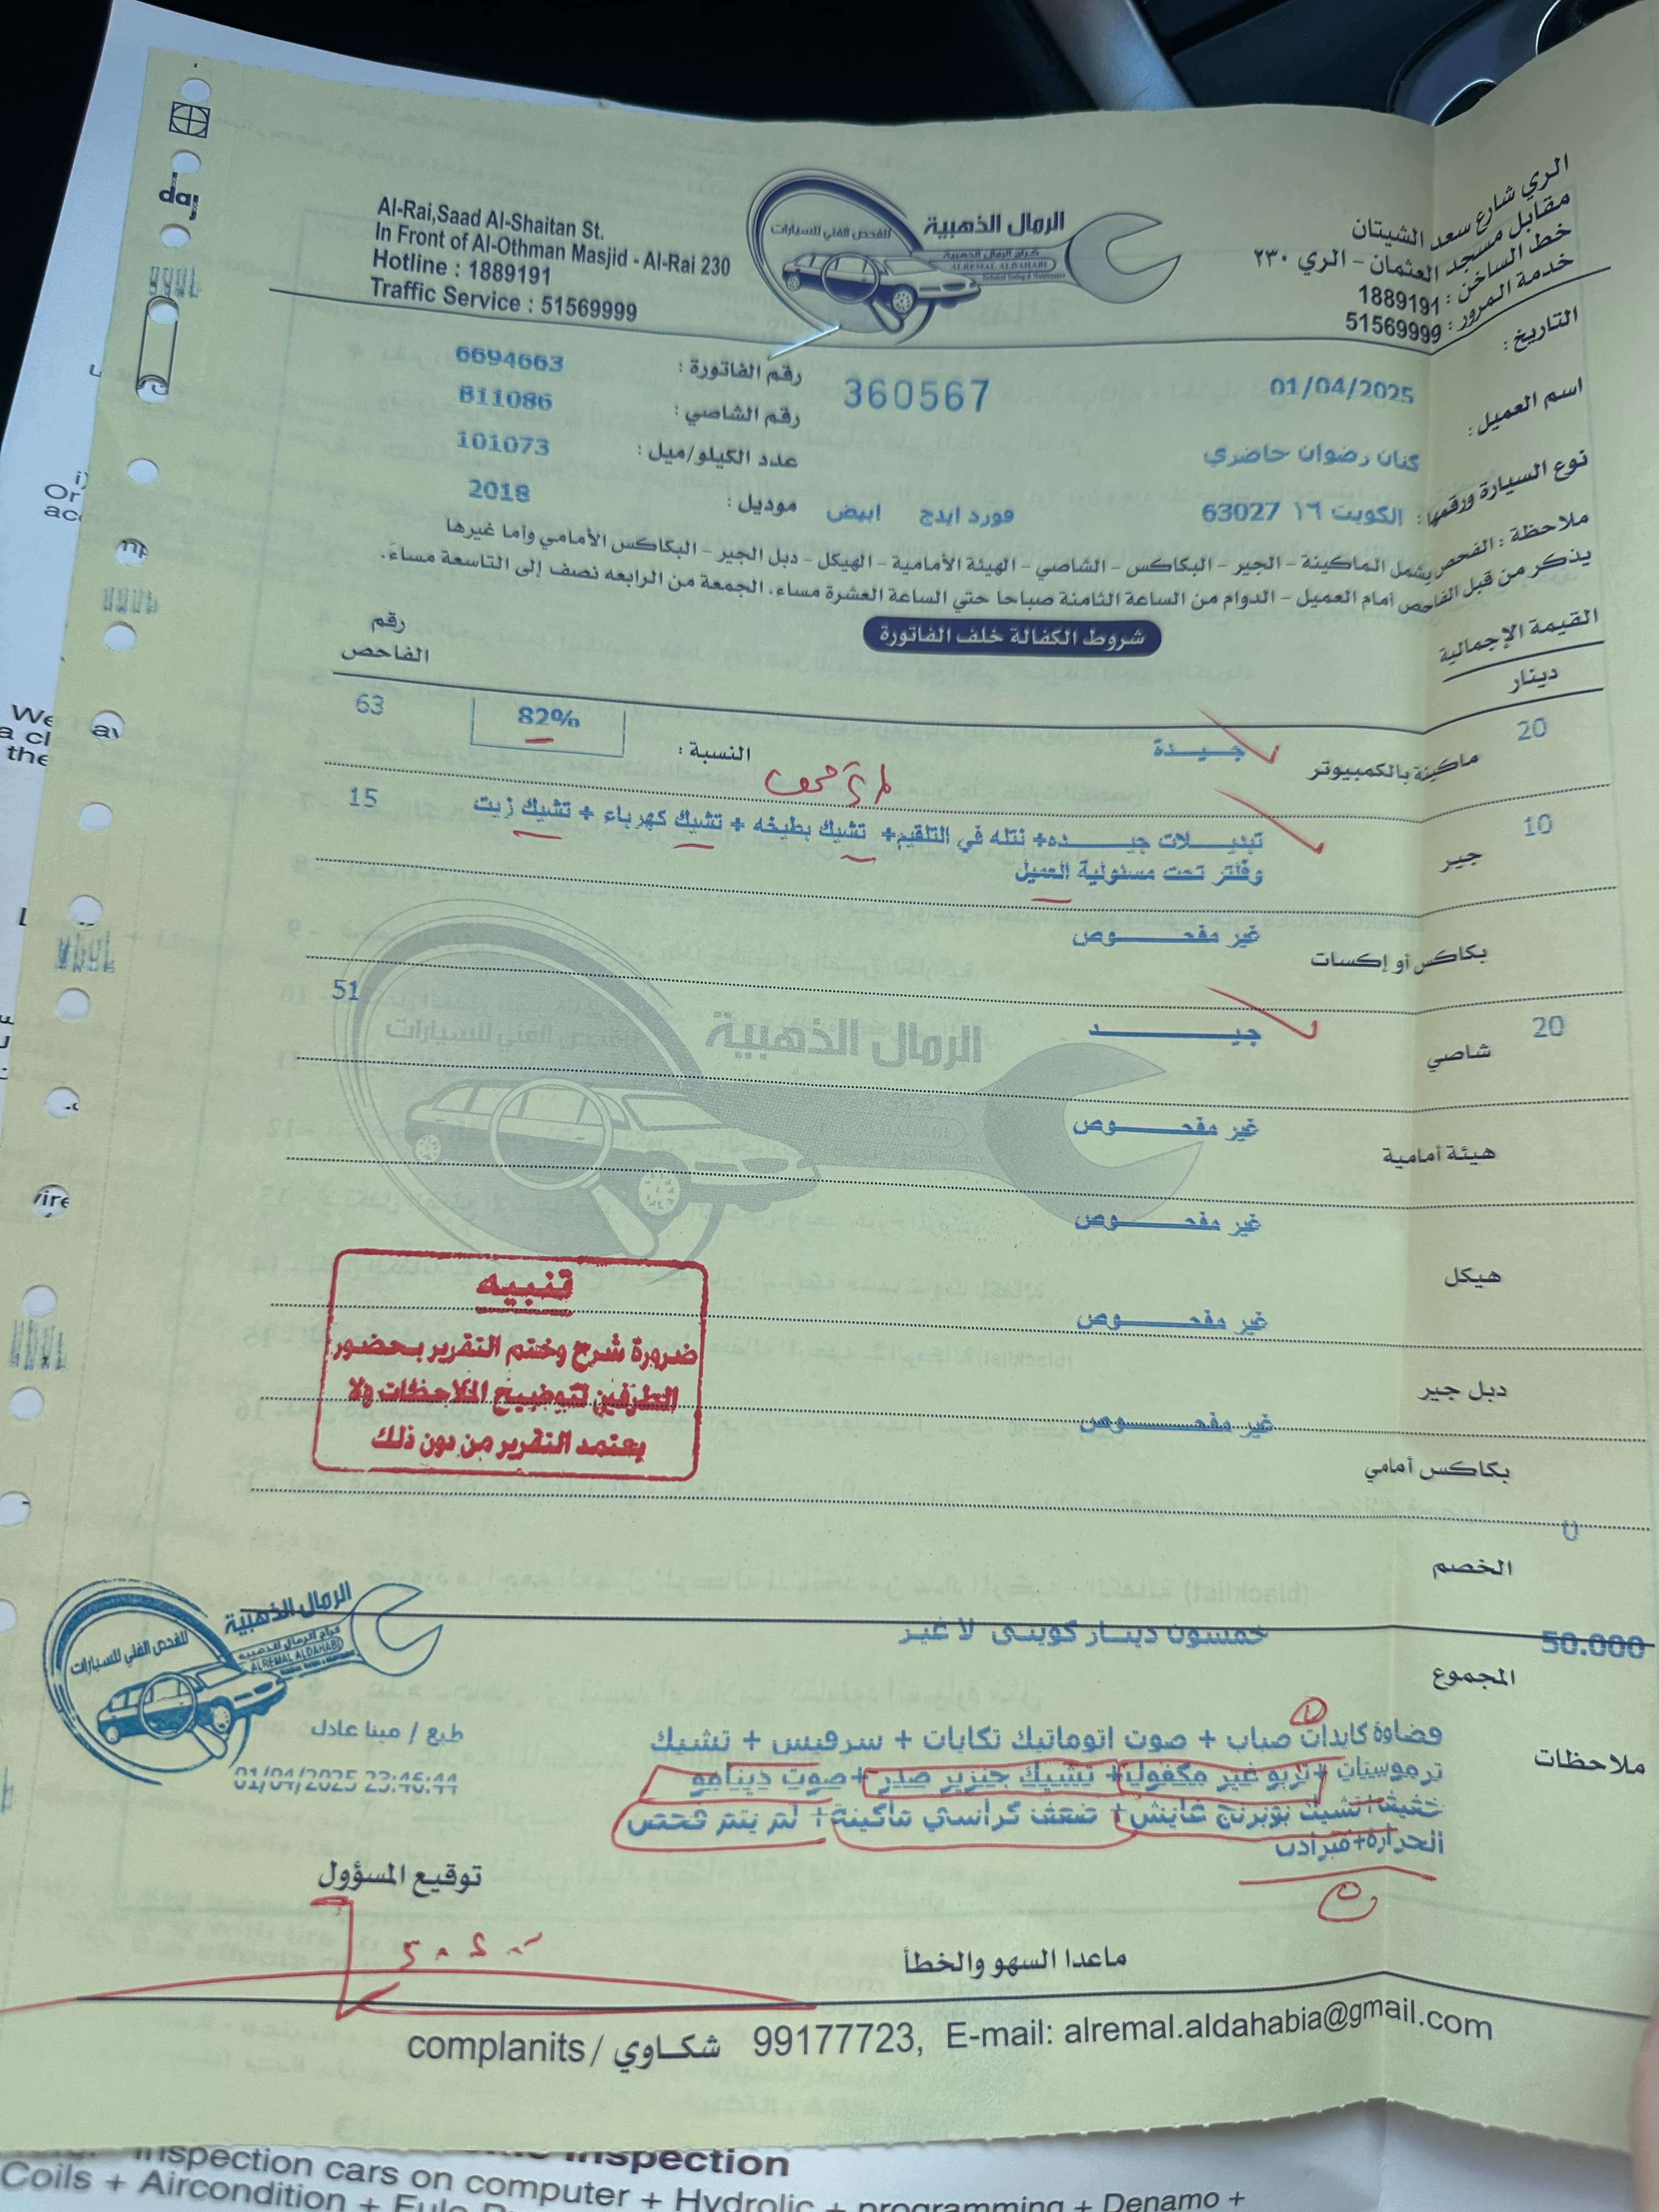 Al-Rai,Saad Al-Shaitan St.
In Front of Al-Othman Masjid - Al-Rai 230
Hotline : 1889191
Traffic Service : 51569999
الرمال الذهبية
للفحص الفني للسيارات
كراج الرمال الذهبية
ALREMAL ALDAHABI
الري شارع سعد الشيتان
مقابل مسجد العثمان - الري ٢٣٠
خط الساخن : 1889191
خدمة المرور : 51569999
التاريخ : 01/04/2025
360567
رقم الفاتورة : 6694663
رقم الشاصي : B11086
اسم العميل : كنان رضوان حاضري
عدد الكيلو/ميل : 101073
نوع السيارة ورقمها : الكويت ١٦ 63027 فورد ايدج ابيض
موديل : 2018
ملاحظة : الفحص يشمل الماكينة - الجير - البكاكس - الشاصي - الهيئة الأمامية - الهيكل - دبل الجير - البكاكس الأمامي وأما غيرها
يذكر من قبل الفاحص أمام العميل - الدوام من الساعة الثامنة صباحا حتي الساعة العشرة مساء. الجمعة من الرابعه نصف إلى التاسعة مساءً.
شروط الكفالة خلف الفاتورة
القيمة الإجمالية
دينار
رقم
الفاحص
20 ماكينة بالكمبيوتر جيــدة النسبة : 82% 63
10 جير تبديــلات جيــده+ نتله في التلقيم+ تشيك بطيخه + تشيك كهرباء + تشيك زيت 15
وفلتر تحت مسئولية العميل
بكاكس أو إكسات غير مفحــوص
20 شاصي جيــد 51
هيئة أمامية غير مفحــوص
هيكل غير مفحــوص
دبل جير غير مفحــوص
بكاكس أمامي غير مفحــوص
الرمال الذهبية
للفحص الفني للسيارات
تنبيه
ضرورة شرح وختم التقرير بحضور
الطرفين لتوضيح الملاحظات ولا
يعتمد التقرير من دون ذلك
الخصم 0
المجموع 50.000 خمسون دينــار كويتــى لا غيــر
ملاحظات
فضاوة كابدات صباب + صوت اتوماتيك تكايات + سرفيس + تشيك
ترموستات +تربو غير مكفول+ تشيك جنزير صدر+صوت دينامو
خفيف+تشيك بوبرنج غايش+ ضعف كراسي ماكينة+ لم يتم فحص
الحرارة+مبرادت
الرمال الذهبية
للفحص الفني للسيارات
كراج الرمال الذهبية
ALREMAL ALDAHABI
طبع / مينا عادل
01/04/2025 23:46:44
توقيع المسؤول
ماعدا السهو والخطأ
complanits / شكـاوي 99177723, E-mail: alremal.aldahabia@gmail.com
Inspection
Inspection cars on computer + Hydrolic + programming + Denamo +
Coils + Aircondition +